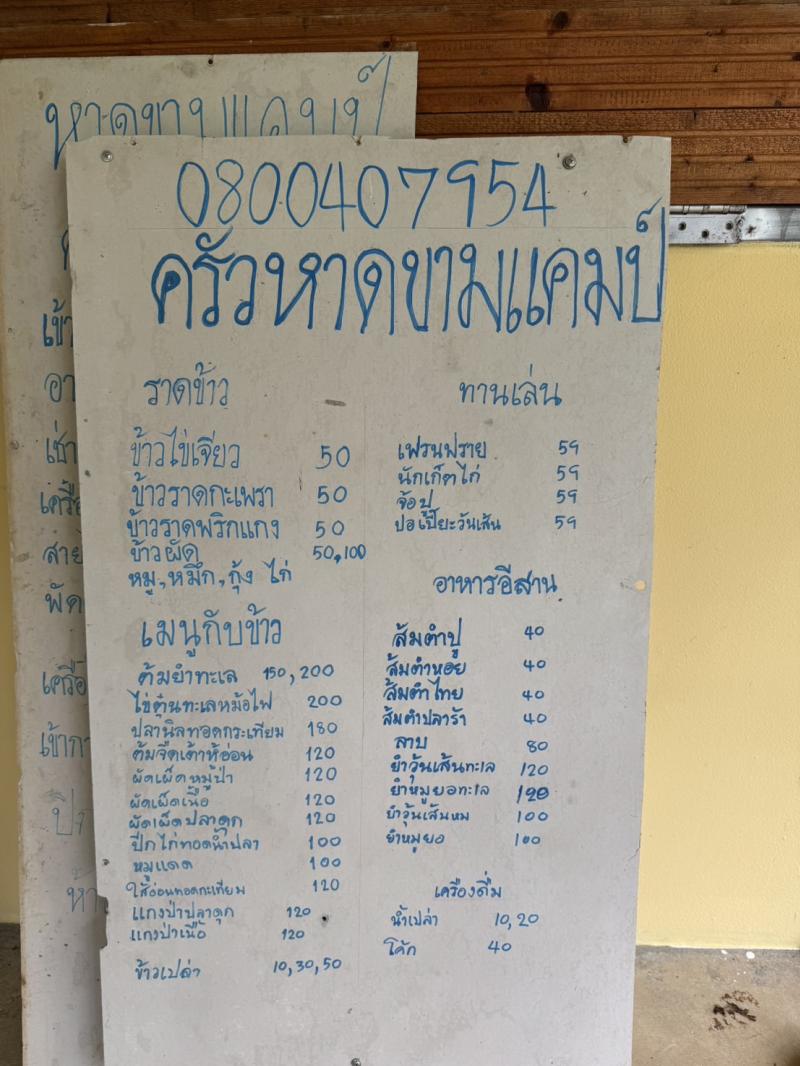 หาดขามแคมป์
0800407954
ครัวหาดขามแคมป์
ราดข้าว
ข้าวไข่เจียว 50
ข้าวราดกะเพรา 50
ข้าวราดพริกแกง 50
ข้าวผัด 50,100
หมู,หมึก,กุ้ง ไก่
เมนูกับข้าว
ต้มยำทะเล 150,200
ไข่ตุ๋นทะเลหม้อไฟ 200
ปลานิลทอดกระเทียม 180
ต้มจืดเต้าหู้อ่อน 120
ผัดเผ็ดหมูป่า 120
ผัดเผ็ดเนื้อ 120
ผัดเผ็ดปลาดุก 120
ปีกไก่ทอดน้ำปลา 100
หมูแดด 100
ไส้อ่อนทอดกระเทียม 120
แกงป่าปลาดุก 120
แกงป่าเนื้อ 120
ข้าวเปล่า 10,30,50
ทานเล่น
เฟรนฟราย 59
นักเก็ตไก่ 59
จ้อปู 59
ปอเปี๊ยะวันเส้น 59
อาหารอีสาน
ส้มตำปู 40
ส้มตำหอย 40
ส้มตำไทย 40
ส้มตำปลาร้า 40
ลาบ 80
ยำวุ้นเส้นทะเล 120
ยำหมูยอทะเล 120
ยำวุ้นเส้นหม 100
ยำหมูยอ 100
เครื่องดื่ม
น้ำเปล่า 10,20
โค้ก 40